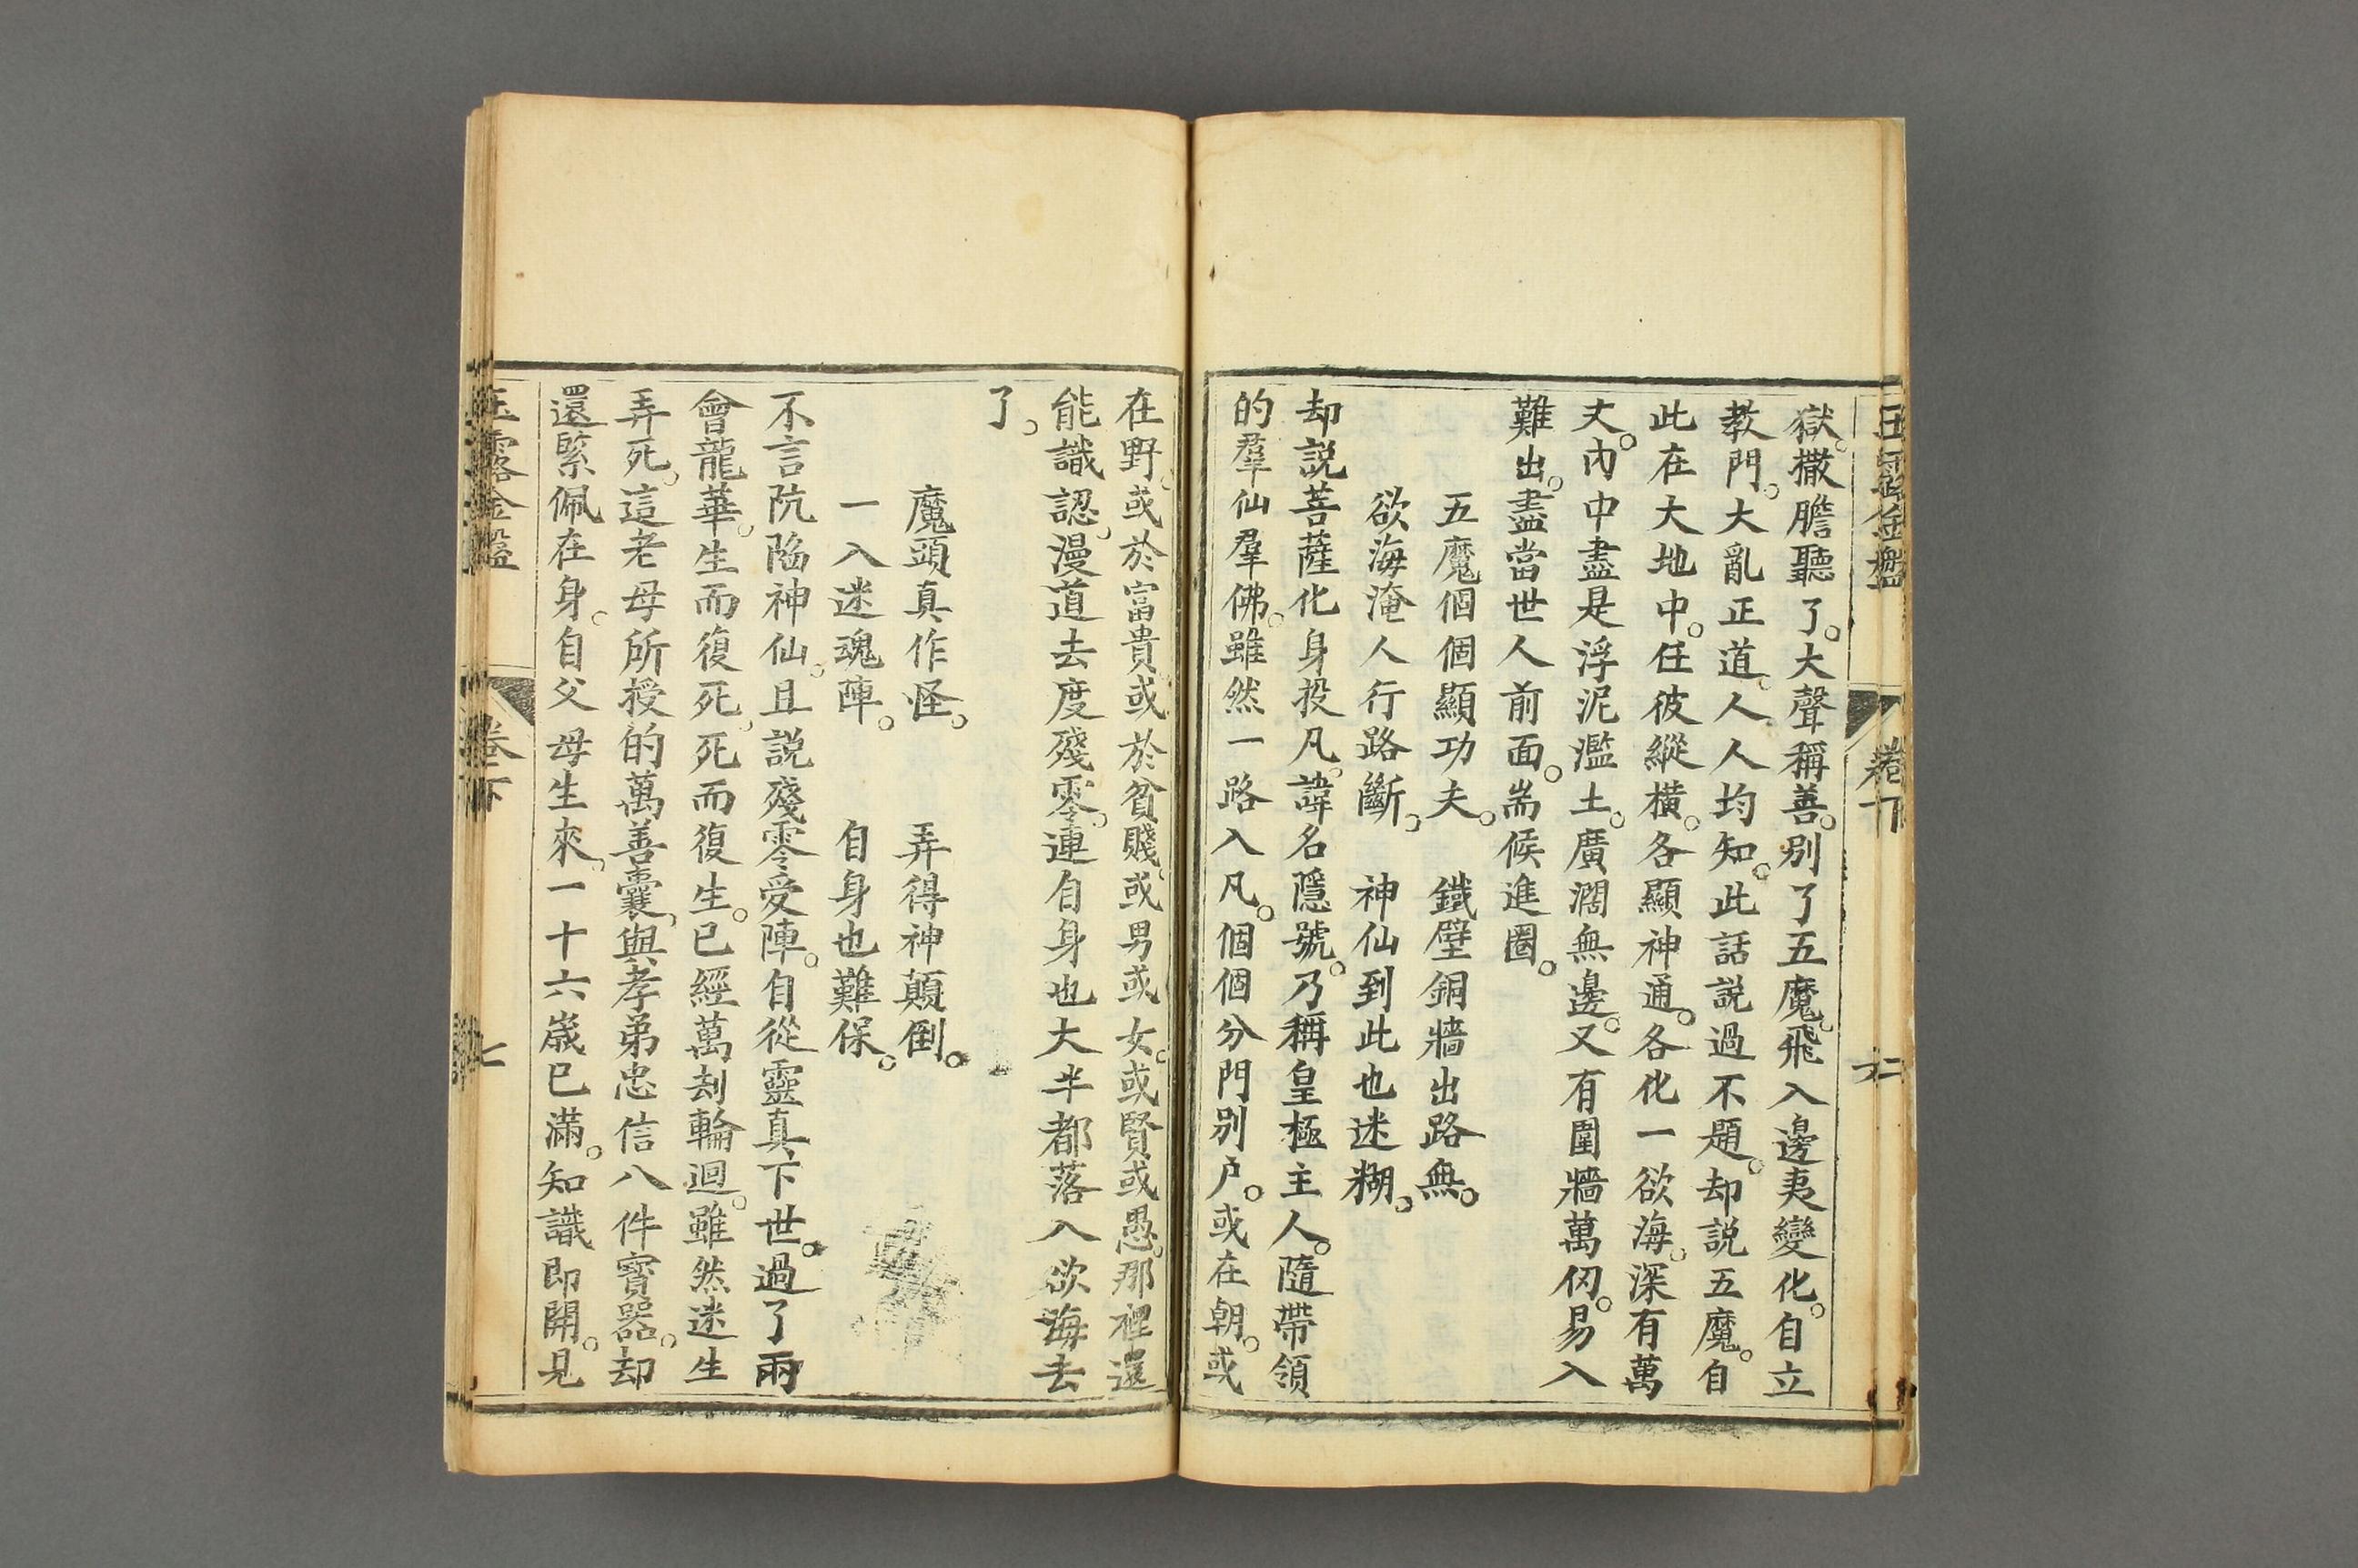 玉露金盤 卷下 六
獄。撒膽聽了。大聲稱善。別了五魔。飛入邊夷變化。自立
教門。大亂正道。人人均知。此話說過不題。却説五魔。自
此在大地中。任彼縱橫。各顯神通。各化一欲海。深有萬
丈。內中盡是浮泥濫土。廣濶無邊。又有圍牆萬仞。易入
難出。盡當世人前面。耑候進圈。
五魔個個顯功夫。 鐵壁銅牆出路無。
欲海淹人行路斷。 神仙到此也迷糊。
却説菩薩化身投凡。諱名隱號。乃稱皇極主人。隨帶領
的羣仙羣佛。雖然一路入凡。個個分門別户。或在朝。或
在野。或於富貴或於貧賤。或男或女。或賢或愚。那裡還
能識認。漫道去度殘零。連自身也大半都落入欲海去
了。
魔頭真作怪。 弄得神顛倒。
一入迷魂陣。 自身也難保。
不言阬陷神仙。且説殘零受陣。自從靈真下世。過了兩
會龍華。生而復死。死而復生。已經萬刼輪迴。雖然迷生
弄死。這老母所授的萬善囊。與孝弟忠信八件寳器。却
還緊佩在身。自父母生來。一十六嵗已滿。知識即開。見
玉露金盤 卷下 七